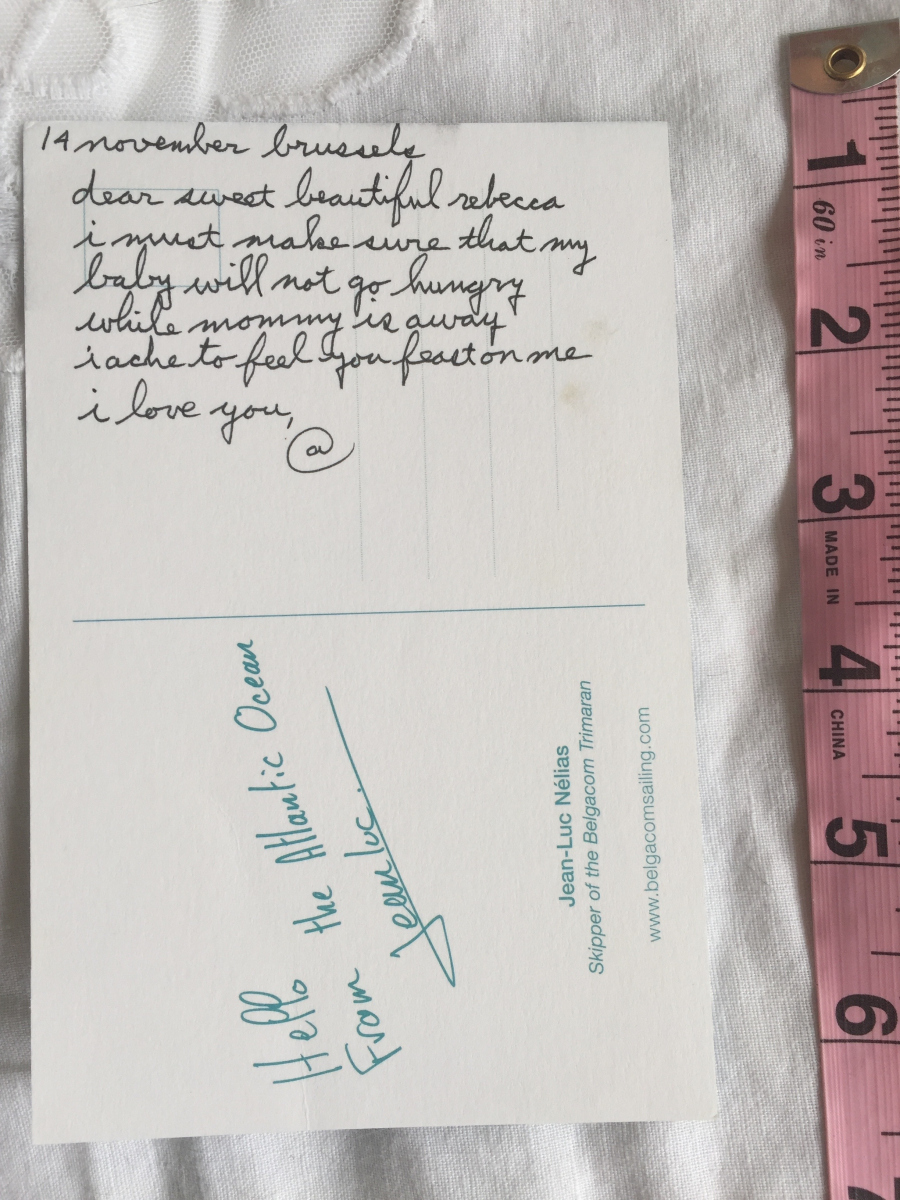 14 november brussels
dear sweet beautiful rebecca
i must make sure that my
baby will not go hungry
while mommy is away
i ache to feel you feast on me
i love you,
@
Hello
the Atlantic Ocean
From Jean Luc
Jean-Luc Nélias
Skipper of the Belgacom Trimaran
www.belgacomsailing.com
1
60 in
2
3
MADE IN
4
CHINA
5
6